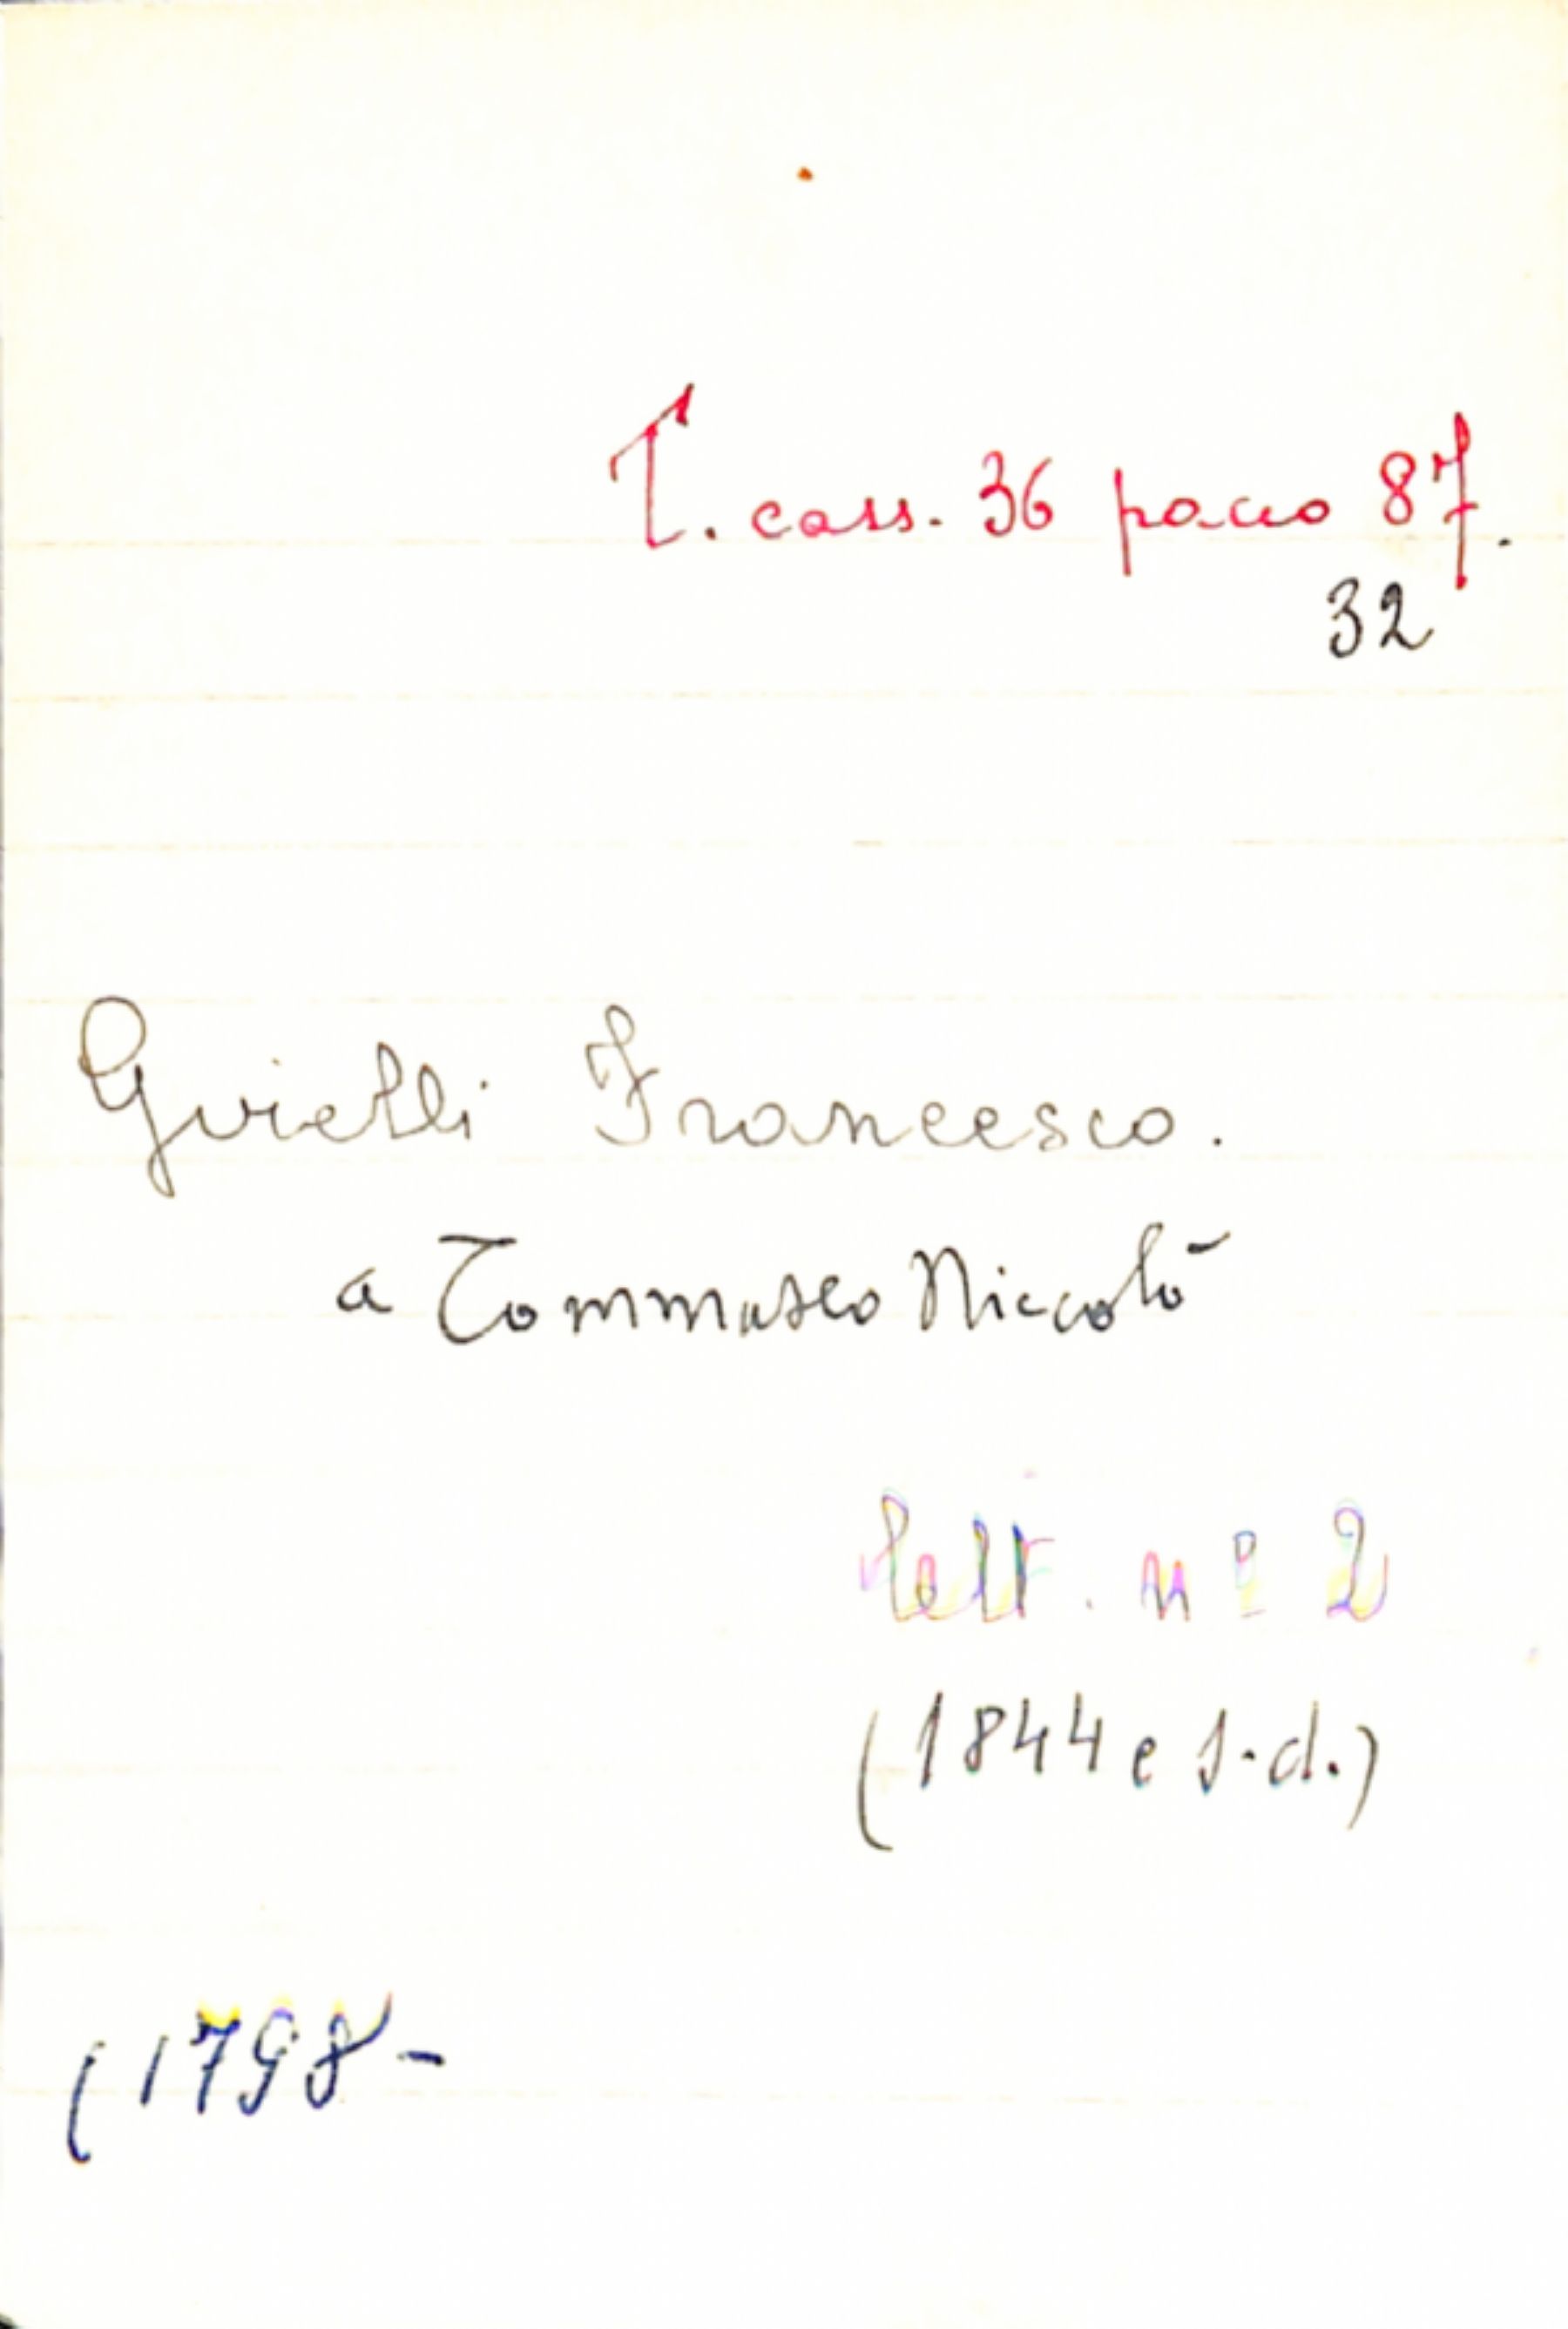 T. cass. 36 pacco 87.
32
Gvielli Francesco.
a Tommaseo Niccolò
lett. nº 2
(1844 e s.d.)
(1798-